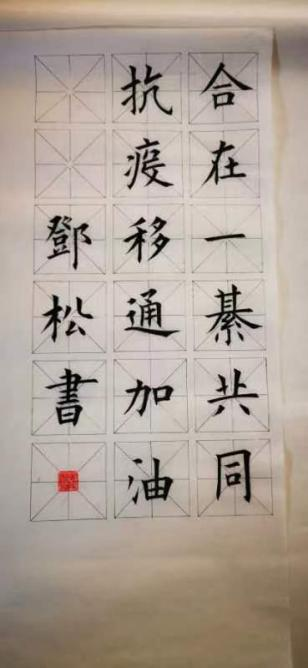 合在一綦共同
抗疫移通加油
鄧松書